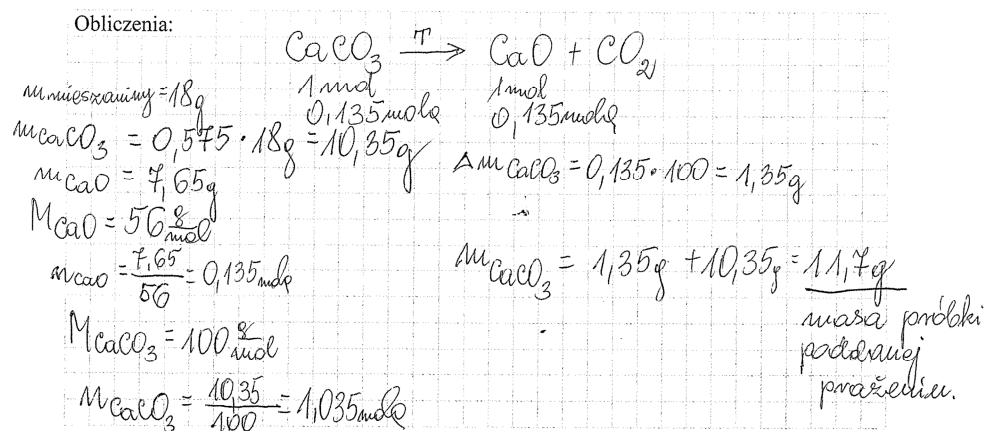 Obliczenia:
CaCO₃ →T CaO + CO₂
1 mol 1 mol
0,135 mola 0,135 mola
m mieszaniny = 18g
mCaCO₃ = 0,575 · 18g = 10,35g
mCaO = 7,65g
MCaO = 56 g/mol
nCaO = 7,65/56 = 0,135 mola
MCaCO₃ = 100 g/mol
nCaCO₃ = 10,35/100 = 1,035 mola
ΔmCaCO₃ = 0,135 · 100 = 1,35g
mCaCO₃ = 1,35g + 10,35g = 11,7g
masa próbki
poddanej
prażeniu.